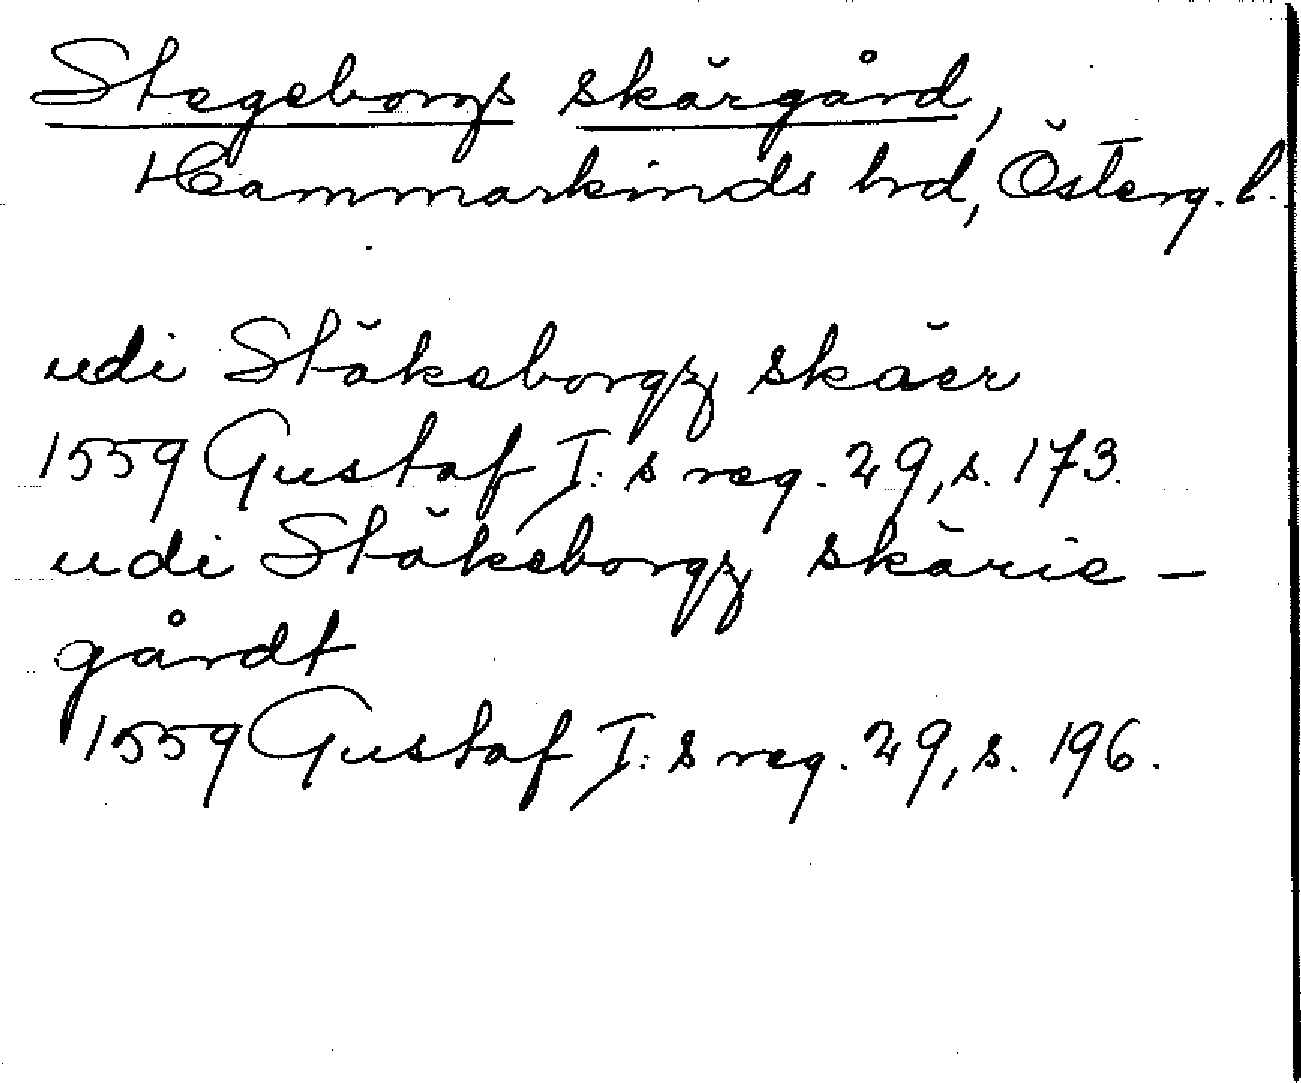 Stegeborgs skärgård,
Hammarkinds hrd, Österg. l.
udi Stäkeborgz skäer
1559 Gustaf I:s reg. 29, s. 173.
udi Stäkeborgz skärie-
gårdt
1559 Gustaf I:s reg. 29, s. 196.